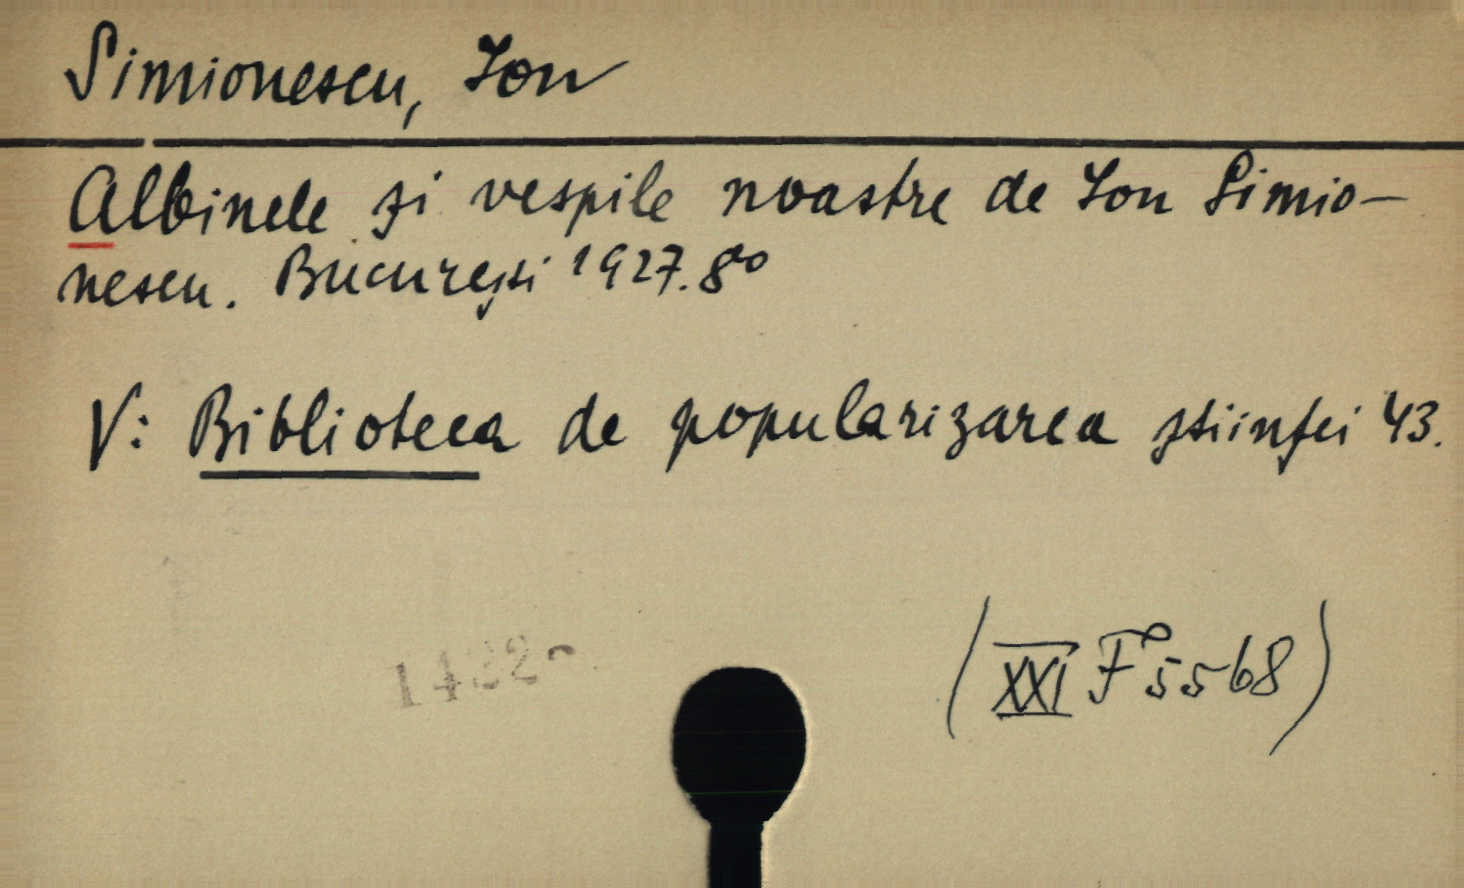 Simionescu, Ion
Albinele și vespile noastre de Ion Simio-
nescu. București 1927. 8°
V: Biblioteca de popularizarea științei 43.
(XXI F 5568)